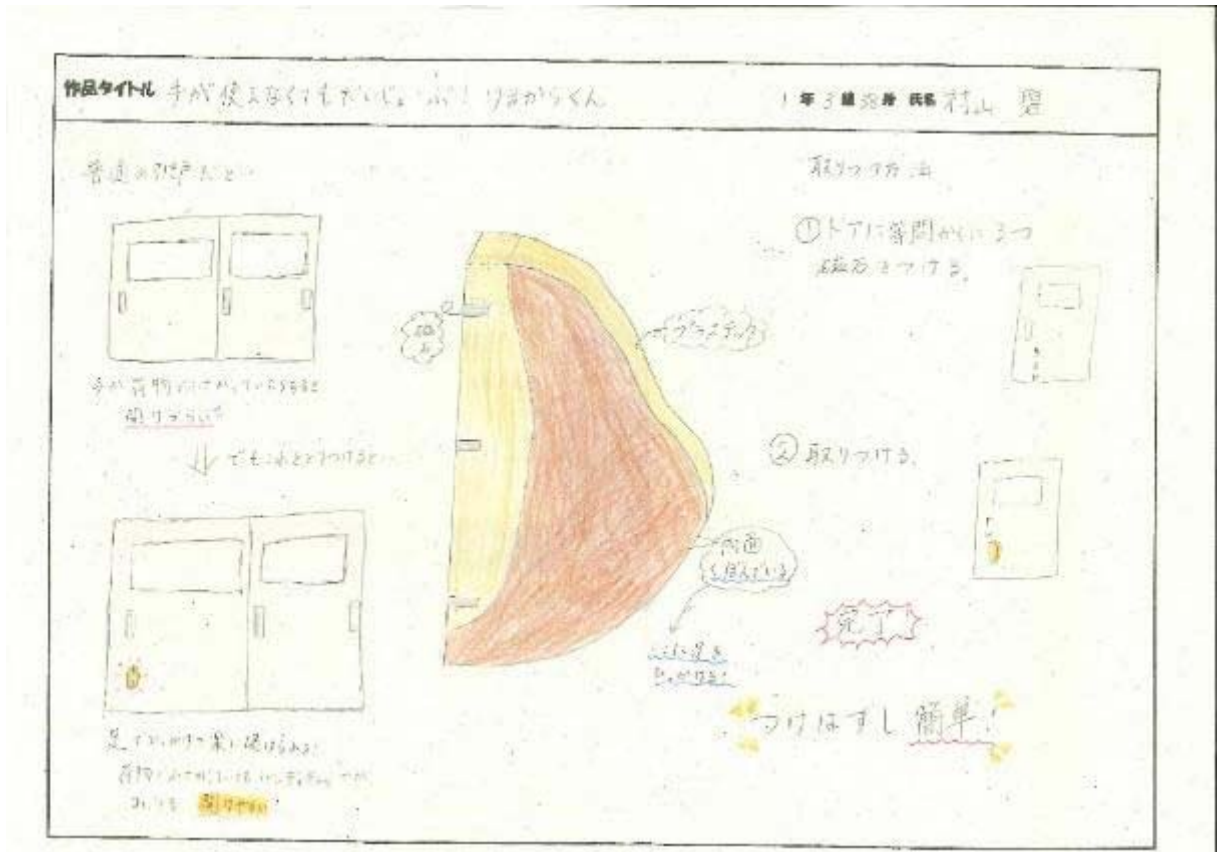 作品タイトル 手が使えなくてもだいじょうぶ!
1年3組38番 氏名 村山
普通の引き戸だと…
手が荷物でふさがっていたりすると
開けづらい
でもこれをとりつけると…
足でひっかけて楽に開けられる!
開けやすい!
磁石
プラスチック
内面
くぼんでいる
ここに足を
ひっかける!
取りつけ方法
①ドアに等間かくに3つ
磁石をつける。
②取りつける。
完了
つけはずし簡単!